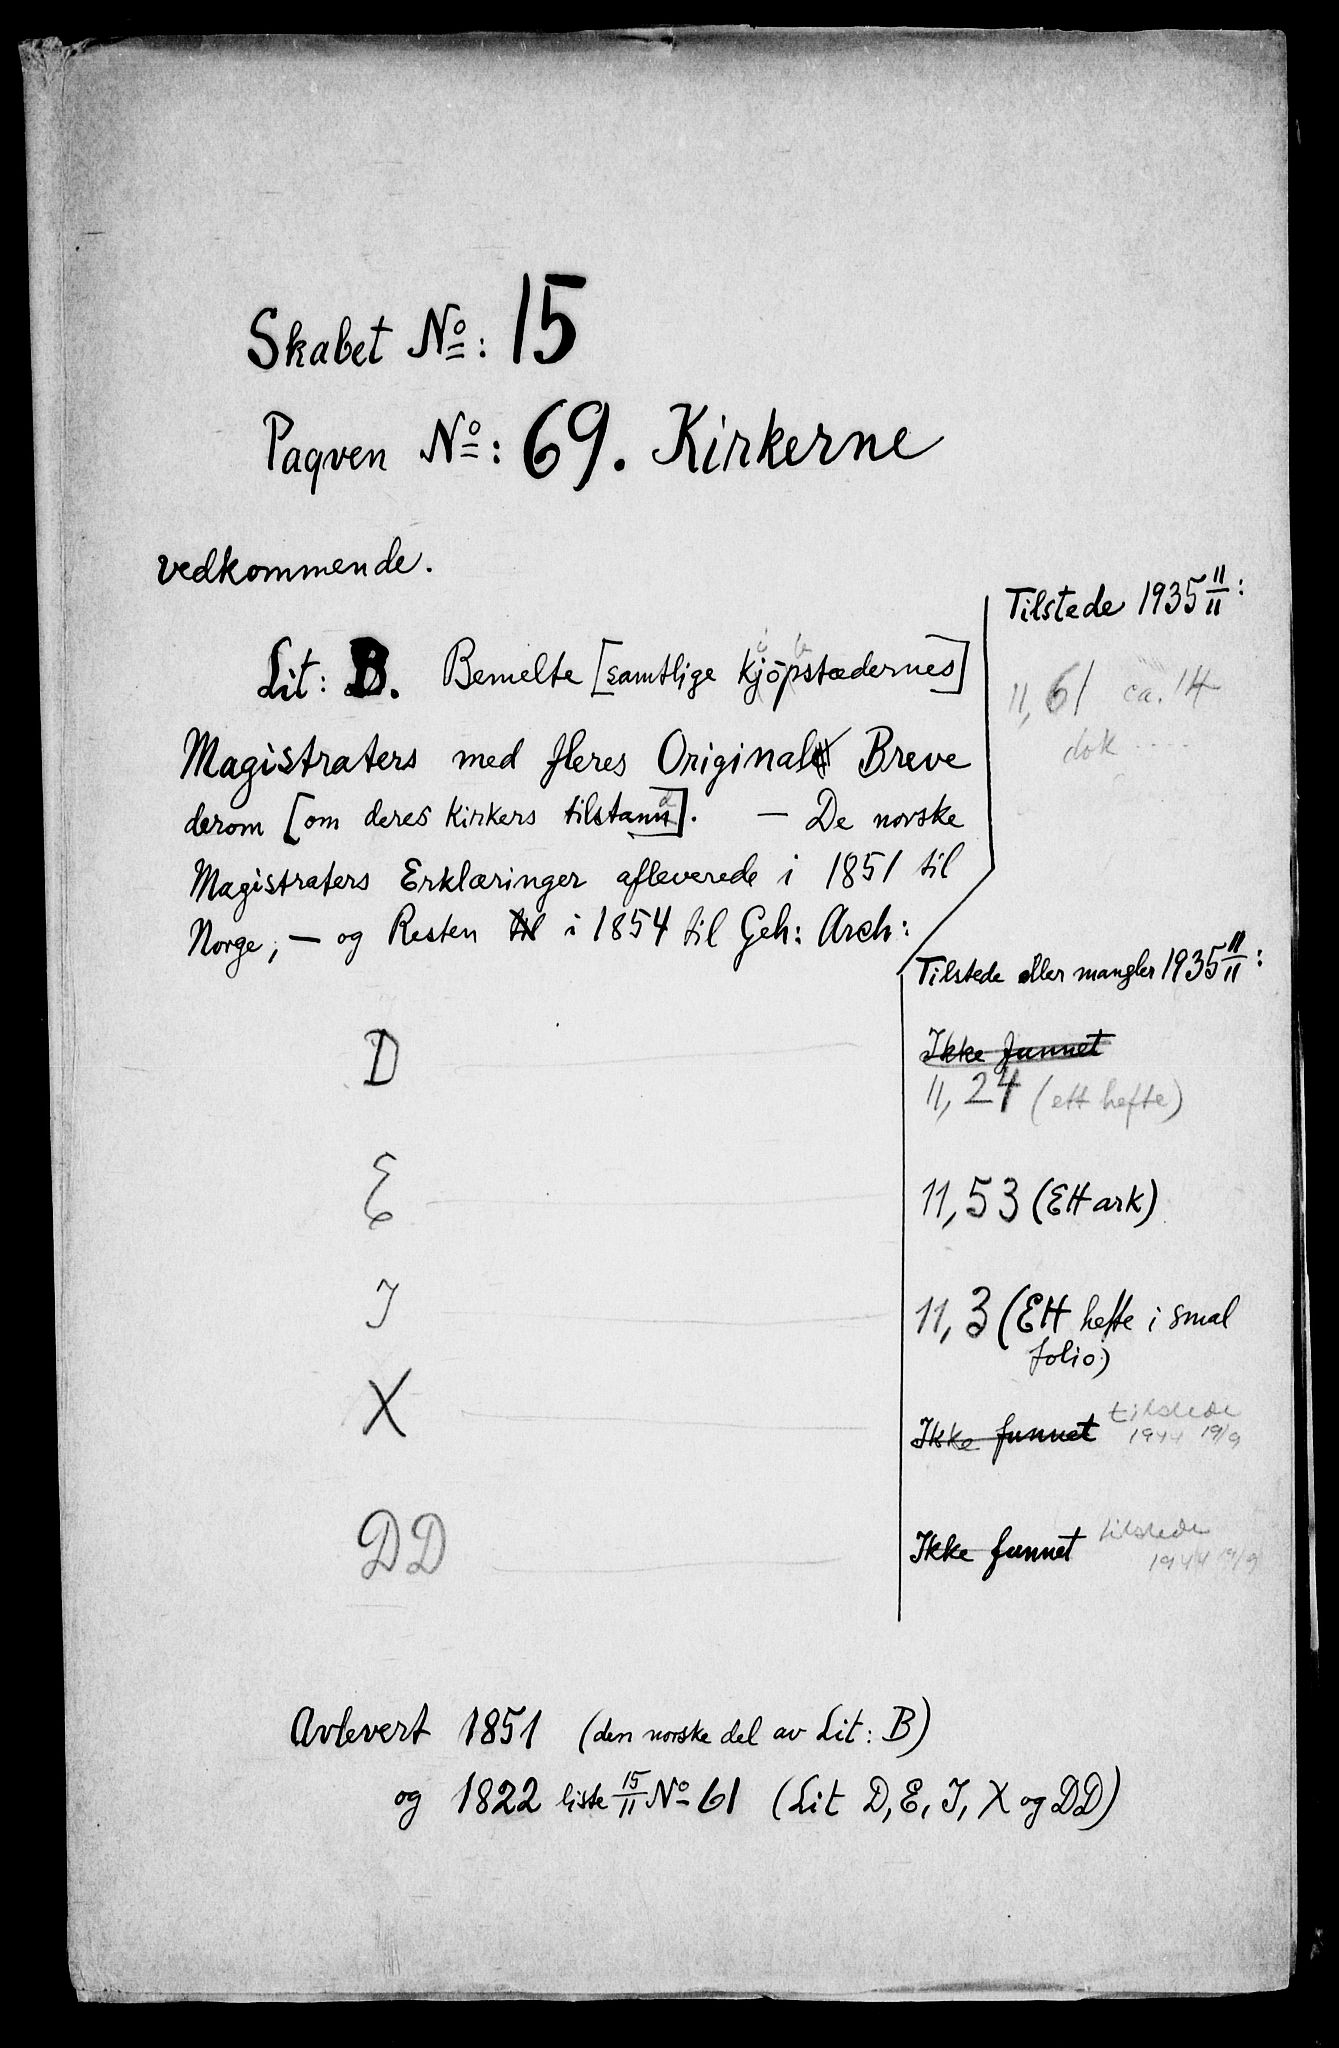 Skabet No: 15
Paqven No: 69. Kirkerne
vedkommende.
Tilstede 1935 11/11:
Lit: B. Bemelte [samtlige Kjöpstædernes]
11, 61 ca. 14
dok ....
Magistraters med fleres Original Breve
derom [om deres Kirkers tilstand]. — De norske
Magistraters Erklæringer afleverede i 1851 til
Norge, — og Resten til i 1854 til Geh: Arch:
Tilstede eller mangler 1935 11/11:
D Ikke funnet
11, 24 (ett hefte)
E 11, 53 (Ett ark)
I 11, 3 (Ett hefte i smal
folio)
X Ikke funnet tilstede
1944 19/9
DD Ikke funnet tilstede
1944 19/9
Avlevert 1851 (den norske del av Lit: B)
og 1822 liste 15/11 No 61 (Lit D, E, I, X og DD)